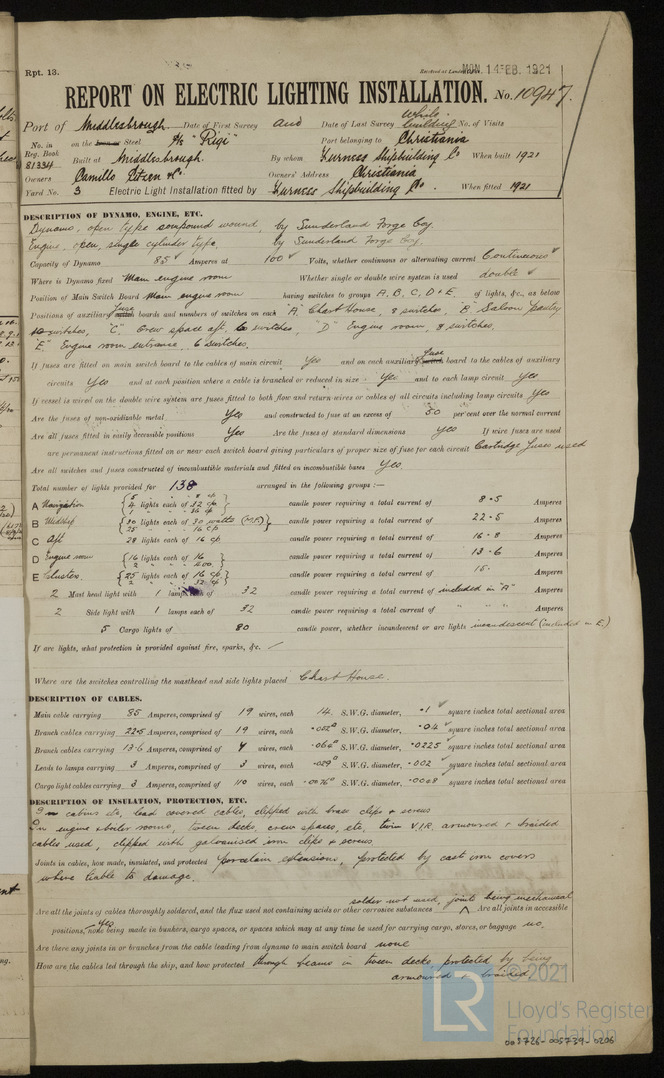 Rpt. 13.
Received at London MON. 14 FEB. 1921
REPORT ON ELECTRIC LIGHTING INSTALLATION. No. 10947.
Port of Middlesbrough Date of First Survey and Date of Last Survey While building No. of Visits
No. in Reg. Book 81334 on the Iron or Steel "Rigi" Port belonging to Christiania
Built at Middlesbrough. By whom Furness Shipbuilding Co When built 1921
Owners Camillo Eitzen & Co Owners' Address Christiania
Yard No. 3 Electric Light Installation fitted by Furness Shipbuilding Co. When fitted 1921
DESCRIPTION OF DYNAMO, ENGINE, ETC.
Dynamo, open type compound wound, by Sunderland Forge Coy.
Engine, open, single cylinder type, by Sunderland Forge Coy.
Capacity of Dynamo 85 Amperes at 100 Volts, whether continuous or alternating current Continuous
Where is Dynamo fixed Main engine room Whether single or double wire system is used double
Position of Main Switch Board Main engine room having switches to groups A, B, C, D & E. of lights, &c., as below
Positions of auxiliary fuse boards and numbers of switches on each "A" Chart House, 8 switches, "B" Saloon pantry
10 switches, "C" Crew space aft, 6 switches, "D" Engine room, 8 switches,
"E" Engine room entrance, 6 switches.
If fuses are fitted on main switch board to the cables of main circuit Yes and on each auxiliary fuse board to the cables of auxiliary
circuits Yes and at each position where a cable is branched or reduced in size Yes and to each lamp circuit Yes
If vessel is wired on the double wire system are fuses fitted to both flow and return wires or cables of all circuits including lamp circuits Yes
Are the fuses of non-oxidizable metal Yes and constructed to fuse at an excess of 50 per cent over the normal current
Are all fuses fitted in easily accessible positions Yes Are the fuses of standard dimensions Yes If wire fuses are used
are permanent instructions fitted on or near each switch board giving particulars of proper size of fuse for each circuit Cartridge fuses used
Are all switches and fuses constructed of incombustible materials and fitted on incombustible bases Yes.
Total number of lights provided for 138 arranged in the following groups :—
A Navigation 5 " 8 cp 4 lights each of 32 cp 1 " 16 cp candle power requiring a total current of 8.5 Amperes
B Midship 30 lights each of 30 watts (M.F.) 25 " 16 cp candle power requiring a total current of 22.5 Amperes
C Aft 28 lights each of 16 cp candle power requiring a total current of 16.8 Amperes
D Engine room 16 lights each of 16 2 " 600 candle power requiring a total current of 13.6 Amperes
E Clusters 25 lights each of 16 cp 2 " 32 cp candle power requiring a total current of 15. Amperes
2 Mast head light with 1 lamps each of 32 candle power requiring a total current of included in "A" Amperes
2 Side light with 1 lamps each of 32 candle power requiring a total current of " " " Amperes
5 Cargo lights of 80 candle power, whether incandescent or arc lights incandescent (included in E.)
If arc lights, what protection is provided against fire, sparks, &c.
Where are the switches controlling the masthead and side lights placed Chart House.
DESCRIPTION OF CABLES.
Main cable carrying 85 Amperes, comprised of 19 wires, each 14. S.W.G. diameter, .1 square inches total sectional area
Branch cables carrying 22.5 Amperes, comprised of 19 wires, each .052" S.W.G. diameter, .04 square inches total sectional area
Branch cables carrying 13.6 Amperes, comprised of 7 wires, each .064" S.W.G. diameter, .0225 square inches total sectional area
Leads to lamps carrying 3 Amperes, comprised of 3 wires, each .029" S.W.G. diameter, .002 square inches total sectional area
Cargo light cables carrying 3 Amperes, comprised of 110 wires, each .0076" S.W.G. diameter, .0048 square inches total sectional area
DESCRIPTION OF INSULATION, PROTECTION, ETC.
In cabins etc, lead covered cables, clipped with brass clips & screws
In engine & boiler rooms, tween decks, crew spaces, etc, twin V.I.R. armoured & braided
cables used, clipped with galvanised iron clips & screws
Joints in cables, how made, insulated, and protected porcelain extensions, protected by cast iron covers
where liable to damage.
solder not used, joints being mechanical
Are all the joints of cables thoroughly soldered, and the flux used not containing acids or other corrosive substances Are all joints in accessible
positions, Yes none being made in bunkers, cargo spaces, or spaces which may at any time be used for carrying cargo, stores, or baggage no.
Are there any joints in or branches from the cable leading from dynamo to main switch board none
How are the cables led through the ship, and how protected through beams in tween decks protected by being
armoured & braided
© 2021
LR
Lloyd's Register
Foundation
005726-005739-0206